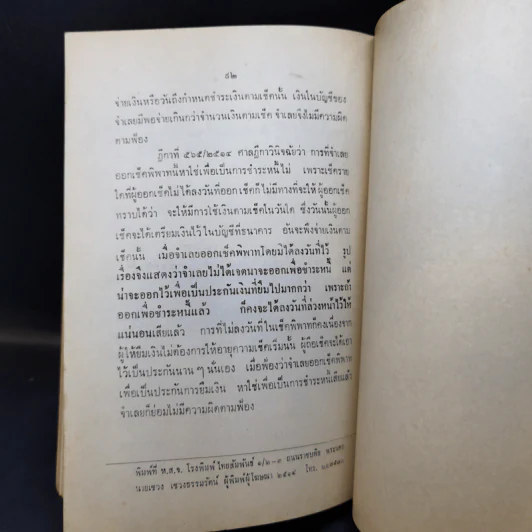 ๘๒
จ่ายเงินหรือวันถึงกำหนดชำระเงินตามเช็คนั้น เงินในบัญชีของ
จำเลยมีพอจ่ายเกินกว่าจำนวนเงินตามเช็ค จำเลยจึงไม่มีความผิด
ตามฟ้อง
ฎีกาที่ ๕๖๕/๒๕๑๔ ศาลฎีกาวินิจฉัยว่า การที่จำเลย
ออกเช็คพิพาทนี้หาใช่เพื่อเป็นการชำระหนี้ไม่ เพราะเช็คราย
ใดที่ผู้ออกเช็คไม่ได้ลงวันที่ออกเช็คก็ไม่มีทางที่จะให้ผู้ออกเช็ค
ทราบได้ว่า จะให้มีการใช้เงินตามเช็คในวันใด ซึ่งวันนั้นผู้ออก
เช็คจะได้เตรียมเงินไว้ในบัญชีที่ธนาคาร อันจะพึงจ่ายเงินตาม
เช็คนั้น เมื่อจำเลยออกเช็คพิพาทโดยมิได้ลงวันที่ไว้ รูป
เรื่องจึงแสดงว่าจำเลยไม่ได้เจตนาจะออกเพื่อชำระหนี้ แต่
น่าจะออกไว้เพื่อเป็นประกันเงินที่ยืมไปมากกว่า เพราะถ้า
ออกเพื่อชำระหนี้แล้ว ก็คงจะได้ลงวันที่ล่วงหน้าไว้ให้
แน่นอนเสียแล้ว การที่ไม่ลงวันที่ในเช็คพิพาทก็คงเนื่องจาก
ผู้ให้ยืมเงินไม่ต้องการให้อายุความเช็คเริ่มนั้น ผู้ถือเช็คจะได้เอา
ไว้เป็นประกันนาน ๆ นั่นเอง เมื่อฟ้องว่าจำเลยออกเช็คพิพาท
เพื่อเป็นประกันการยืมเงิน หาใช่เพื่อเป็นการชำระหนี้เสียแล้ว
จำเลยก็ย่อมไม่มีความผิดตามฟ้อง
พิมพ์ที่ ห.ส.จ. โรงพิมพ์ไทยสัมพันธ์ ถนนราชบพิธ พระนคร
นายเชวง เชวงธรรมรัตน์ ผู้พิมพ์ผู้โฆษณา ๒๕๑๕ โทร.